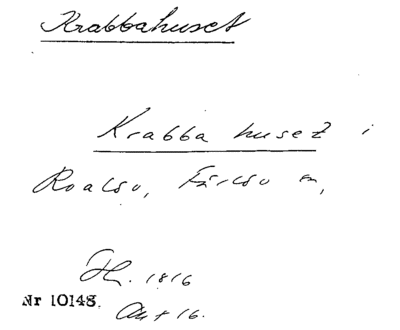 Krabbahuset
Krabba huset i
Roalsö, Fårösu sn,
Hl. 1816
Nr 10148.
Ant 16.